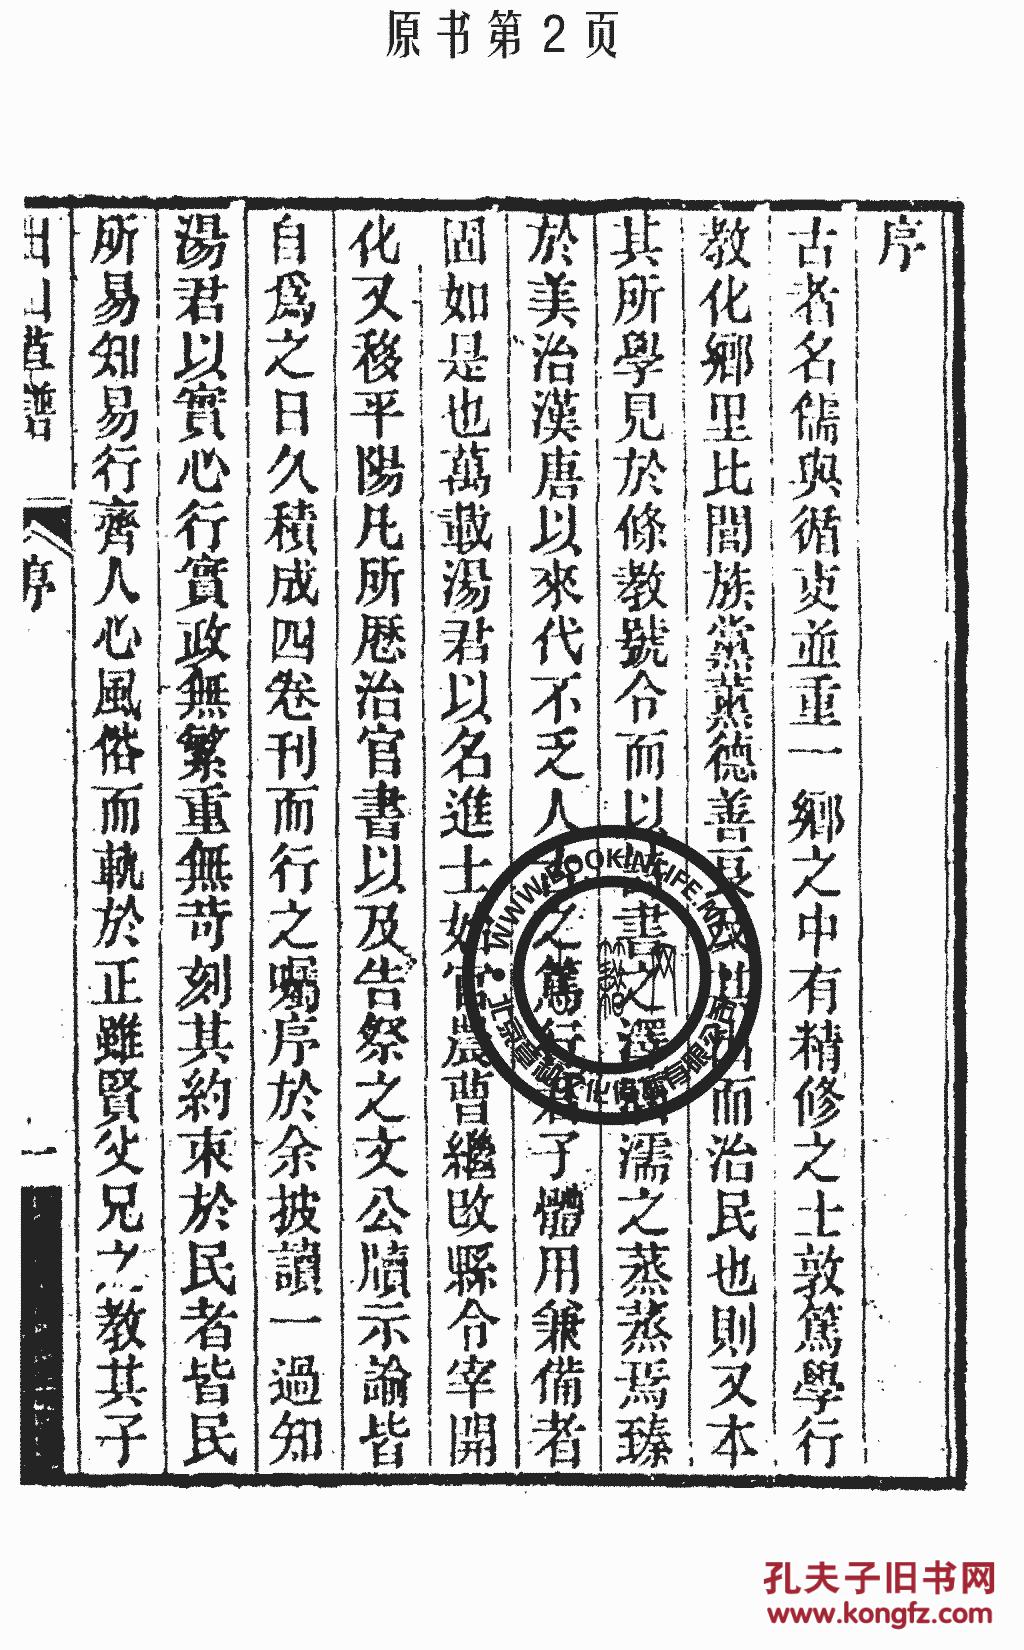 原书第2页
序
古者名儒與循吏並重一鄉之中有精修之士敦篤學行
教化鄉里比閭族黨薰德善良及其出而治民也則又本
其所學見於條教號令而以詩書之澤濡之蒸蒸焉臻
於美治漢唐以來代不乏人古之篤行君子體用兼備者
固如是也萬載湯君以名進士始官農曹繼改縣令宰開
化又移平陽凡所歷治官書以及告祭之文公牘示諭皆
自爲之日久積成四卷刊而行之囑序於余披讀一過知
湯君以實心行實政無繁重無苛刻其約束於民者皆民
所易知易行齊人心風俗而軌於正雖賢父兄之教其子
出山草譜
序
一
WWW.BOOKINLIFE.NET
北京 文化 有限公司
孔夫子旧书网
www.kongfz.com